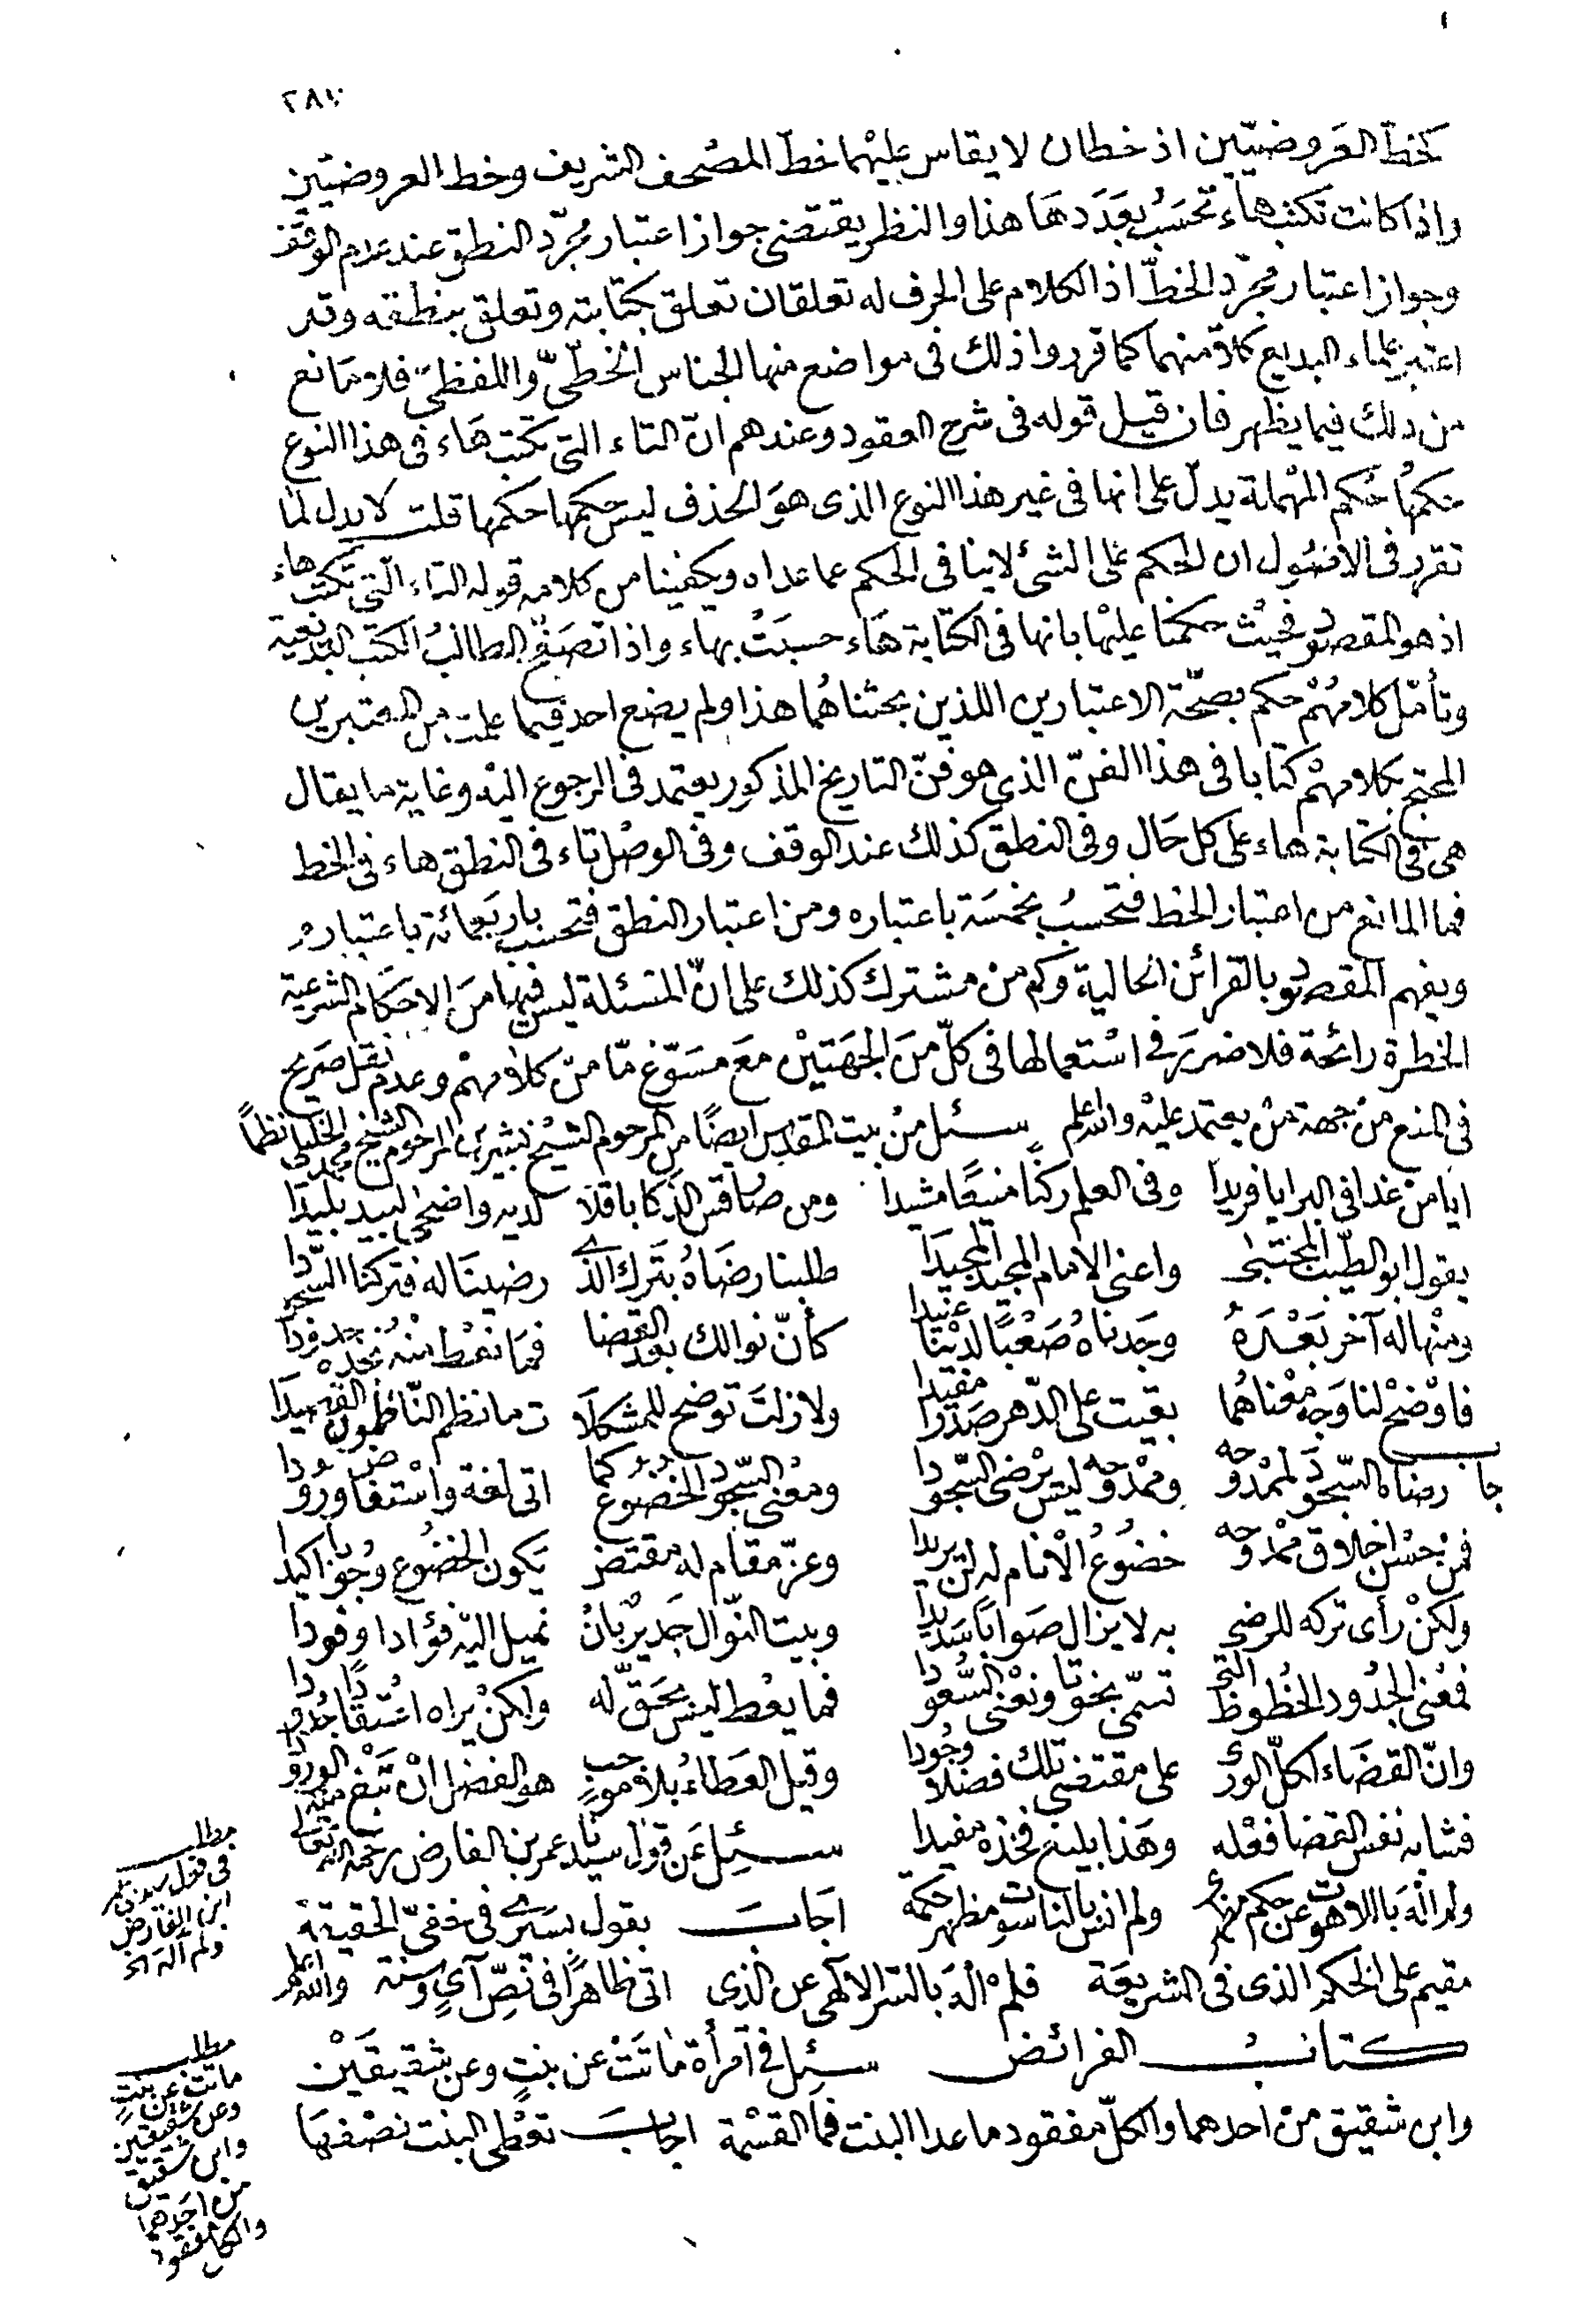 ٢٨٧
كخطّ العَروضيّين اذ خطان لا يقاس عليْهما خطّ المصْحف الشريف وخط العروضيّين
واذا كانت تكتب هاء تحْسَبُ بعَدَدهَا هذا والنظر يقتضى جواز اعتبار مجرّد النطق عند عدم الوقف
وجواز اعتبار مجرّد الخطّ اذ الكلام على الحرف له تعلقان تعلق بكتابته وتعلق بنطقه وقد
اعتبر علماء البديع كلاّ منهما كما قرروا ذلك فى مواضع منها الجناس الخطّىّ واللفظىّ فلا مَانع
من ذلك فيما يظهر فان قيل قوله فى شرح العقود وعندهم انّ التاء التى تكتب هَاء فى هذا النوع
حكمهُا حُكم المهْملة يدلّ على انها فى غير هذا النوع الذى هوَ الحذف ليسَ حكمها حكمها قلت لا يدل لما
تقرر فى الاصُول ان الحكم عَلى الشئ لا ينافى الحكم عما عداه ويكفينا من كلامه قوله التاء الّتى تكتب هاء
اذ هو المقصود فحيْث حكمنا عليْها بانها فى الكتابة هَاء حسبَتْ بهاء واذا تصَفّح الطالبُ الكتب البَديعية
وتأمّل كلامهُمْ حكم بصحّة الاعتبارين اللذين بحثناهُما هذا ولم يضع احد فيما علمت من المعتبرين
المحتج بكلامهمْ كتابا فى هذا الفنّ الذى هو فنّ التاريخ المذكور يعتمد فى الرجوع اليْه وغاية ما يقال
هى فى الكتابة هاء على كل حَال وفى النطق كذلك عند الوقف وفى الوصْل تاء فى النطق هاء فى الخط
فما المانع من اعتبار الخط فتحْسبُ بخمْسَة باعتباره ومن اعتبار النطق فتحسَب باربَعمائة باعتباره
ويفهم المقصود بالقرائن الحالية وكم منْ مشترك كذلك على انّ المَسْئلة ليسَ فيها منَ الاحكام الشرعية
الخطرة رائحة فلا ضررَ فى اسْتعمالها فى كلّ منَ الجهَتيْن معَ مسَوّغ مّا منْ كلامهمْ وعدم نقل صَريح
فى المنع منْ جهة منْ يعتمد عليْه والله اعلم سئل منْ بيت المقدس ايضًا من المرحوم الشيْخ بشير بن المرحوم الشيخ محمد الخليلى نظماً
ايا منْ غدا فى البرايا فريدا وفى العلم ركنًا منيعًا مشيدا ومن صار قسّ الذكا باقلا لديه واضحى لبيد بليدا
يقول ابو الطيّب المجْتبى واعنى الامام المجيد المجيدَا طلبنا رضَاهُ بتَرك الذى رضينَا له فتركنا السّجودا
ومنْها له آخر بَعْدَهُ وجَدناهُ صَعْبًا لديْنا عنيدا كأنّ نوالك بعْد القضا فمَا تعْط منْهُ نجدْهُ جدودا
فاوْضحْ لنا وَجه معْناهُما بقيت على الدّهر صَدْرا مفيدا ولا زلتَ توضح للمشكلا ت ما نظم النّاظمون القصيدَا
جاب رضاه السّجودَ لممْدوحه وممْدوحه ليسَ يرْضى السّجودا ومعْنى السّجود الخضُوع كما اتى لغة واسْتفاد ورودا
فمن حُسْن اخلاق ممْدوحه خضُوعُ الْانام له لن يريدا وعزّ مقام له مقتض يَكون الخضُوع وجُوبا اكيدا
ولكنْ رأى تركه للرضى به لا يزال صَوابًا سَديدا وبيت النّوال جَديرٌ بانْ نميل اليْه فؤادا وفودا
فمعْنى الجدُود الحُظوظ التى تسمّى بخوتا وتعْنى السّعُودا فما يعْط ليْسَ بحَقّ له ولكنْ يراه اسْتقادًا جُدودا
وانّ القضَاء لكلّ الورى على مقتضى تلك فضلا وجُودا وقيل العَطاءُ بلا موجب هو الفضل انْ تبْغ منْه الورودا
فشابه نفس القضا فعْله وهَذا بليغ فخذه مفيدا سُئِل عَن قول سيّدى عمر بن الفارض رحمه الله تعالى
ولم الْهَ باللاهوت عن حكم مظْهرى ولم انسَ بالناسوت مظهر حكمة اجَاب يقول بسَيرى فى خفىّ الحقيقة
مقيم على الحكم الذى فى الشريعَة فلمْ الْه بالسّر الالهى عن الذى اتى ظاهرًا فى نصِّ آىٍ وسنة والله اعلم
كتابُ الفرائض سئِل فى امرأة ماتَتْ عن بنتٍ وعن شقيقَيْن
وابن شقيق منْ احدهما والكلّ مفقود ما عدا البنت فما القسْمة اجابَ تعْطى البنت نصْفهَا
مطلب
فى قول سيدى عمر
ابن الفارض
ولم الْهَ الخ
مطلب
ماتت عن بنتٍ
وعن شقيقين
وابن شقيق
من احدهما
والكل مفقود